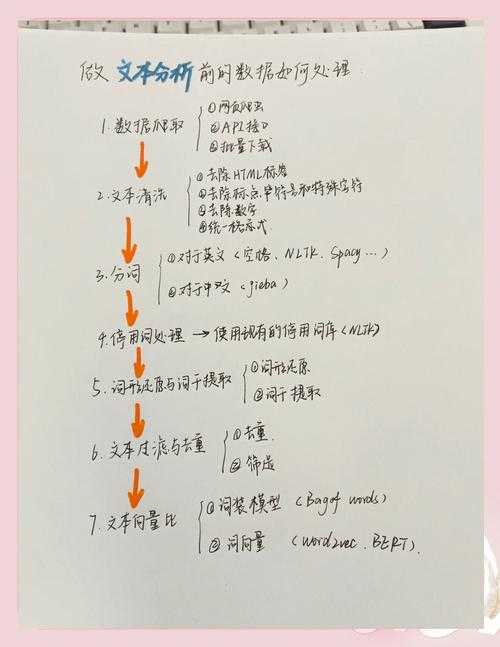 做 文本分析 前的数据如何处理
1. 数据爬取
①网页爬虫
②API接口
③批量下载
2. 文本清洗
①去除HTML标签
②去除标点符号和特殊字符
③去除数字
④统一格式
3. 分词
①对于英文(空格、NLTK、Spacy…)
②对于中文(jieba)
4. 停用词处理 → 使用现有的停用词库(NLTK)
5. 词形还原与词干提取
①词形还原
②词干提取
6. 文本过滤与去重
①去重
②筛选
7. 文本向量比
①词装模型 (Bag of words)
②词向量 (word2vec、BERT).